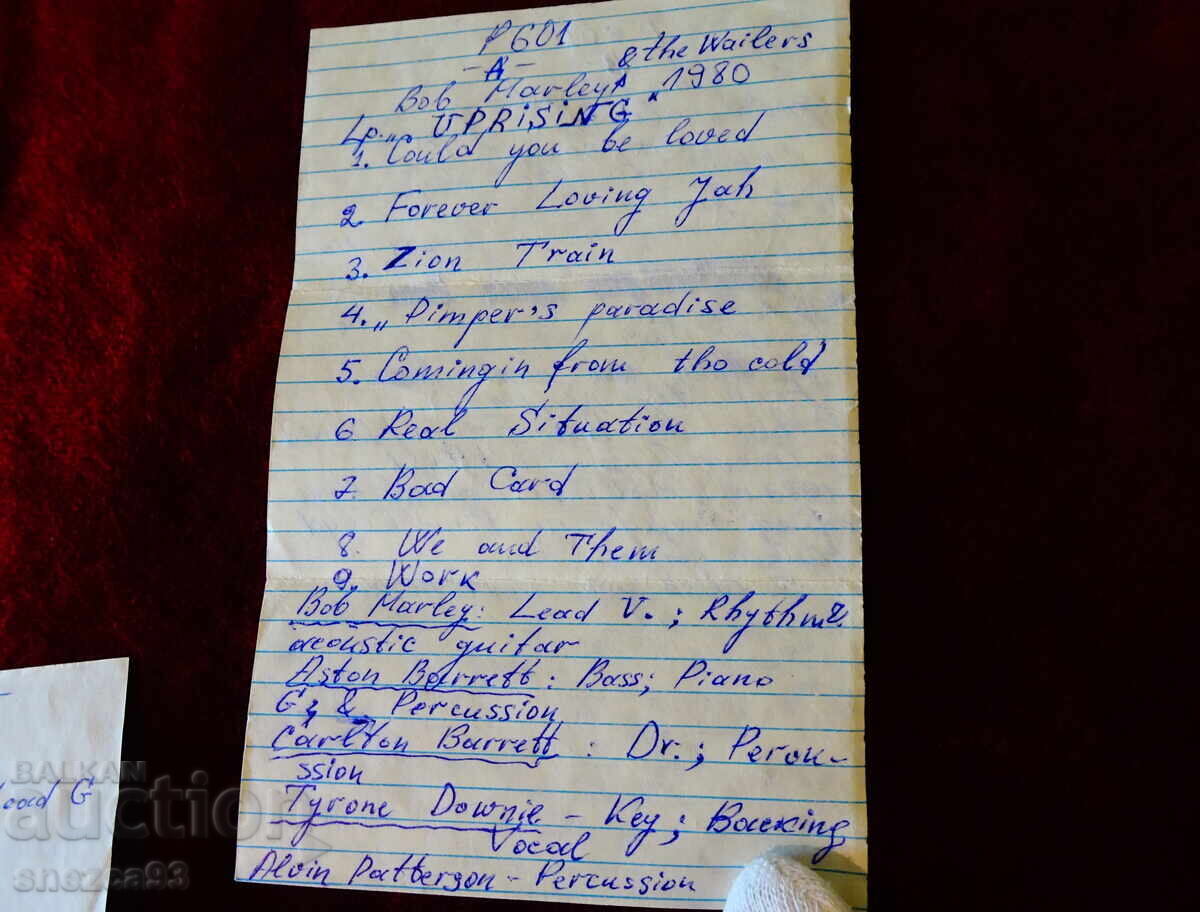 P601
-A-
Bob Marley & the Wailers
Lp. „ UPRiSiNG" 1980
1. Could you be loved
2. Forever Loving Jah
3. Zion Train
4. „Pimper's paradise
5. Comingin from tho cold
6 Real Situation
7. Bad Card
8. We and Them
9. Work
Bob Marley: Lead V.; Rhythm &
acoustic guitar
Aston Barrett: Bass; Piano
G; & Percussion
Carlton Barrett: Dr.; Percu-
ssion
Tyrone Downie - Key; Backing
Vocal
Alvin Patterson - Percussion
Lead G
BALKAN
auction
snezca93